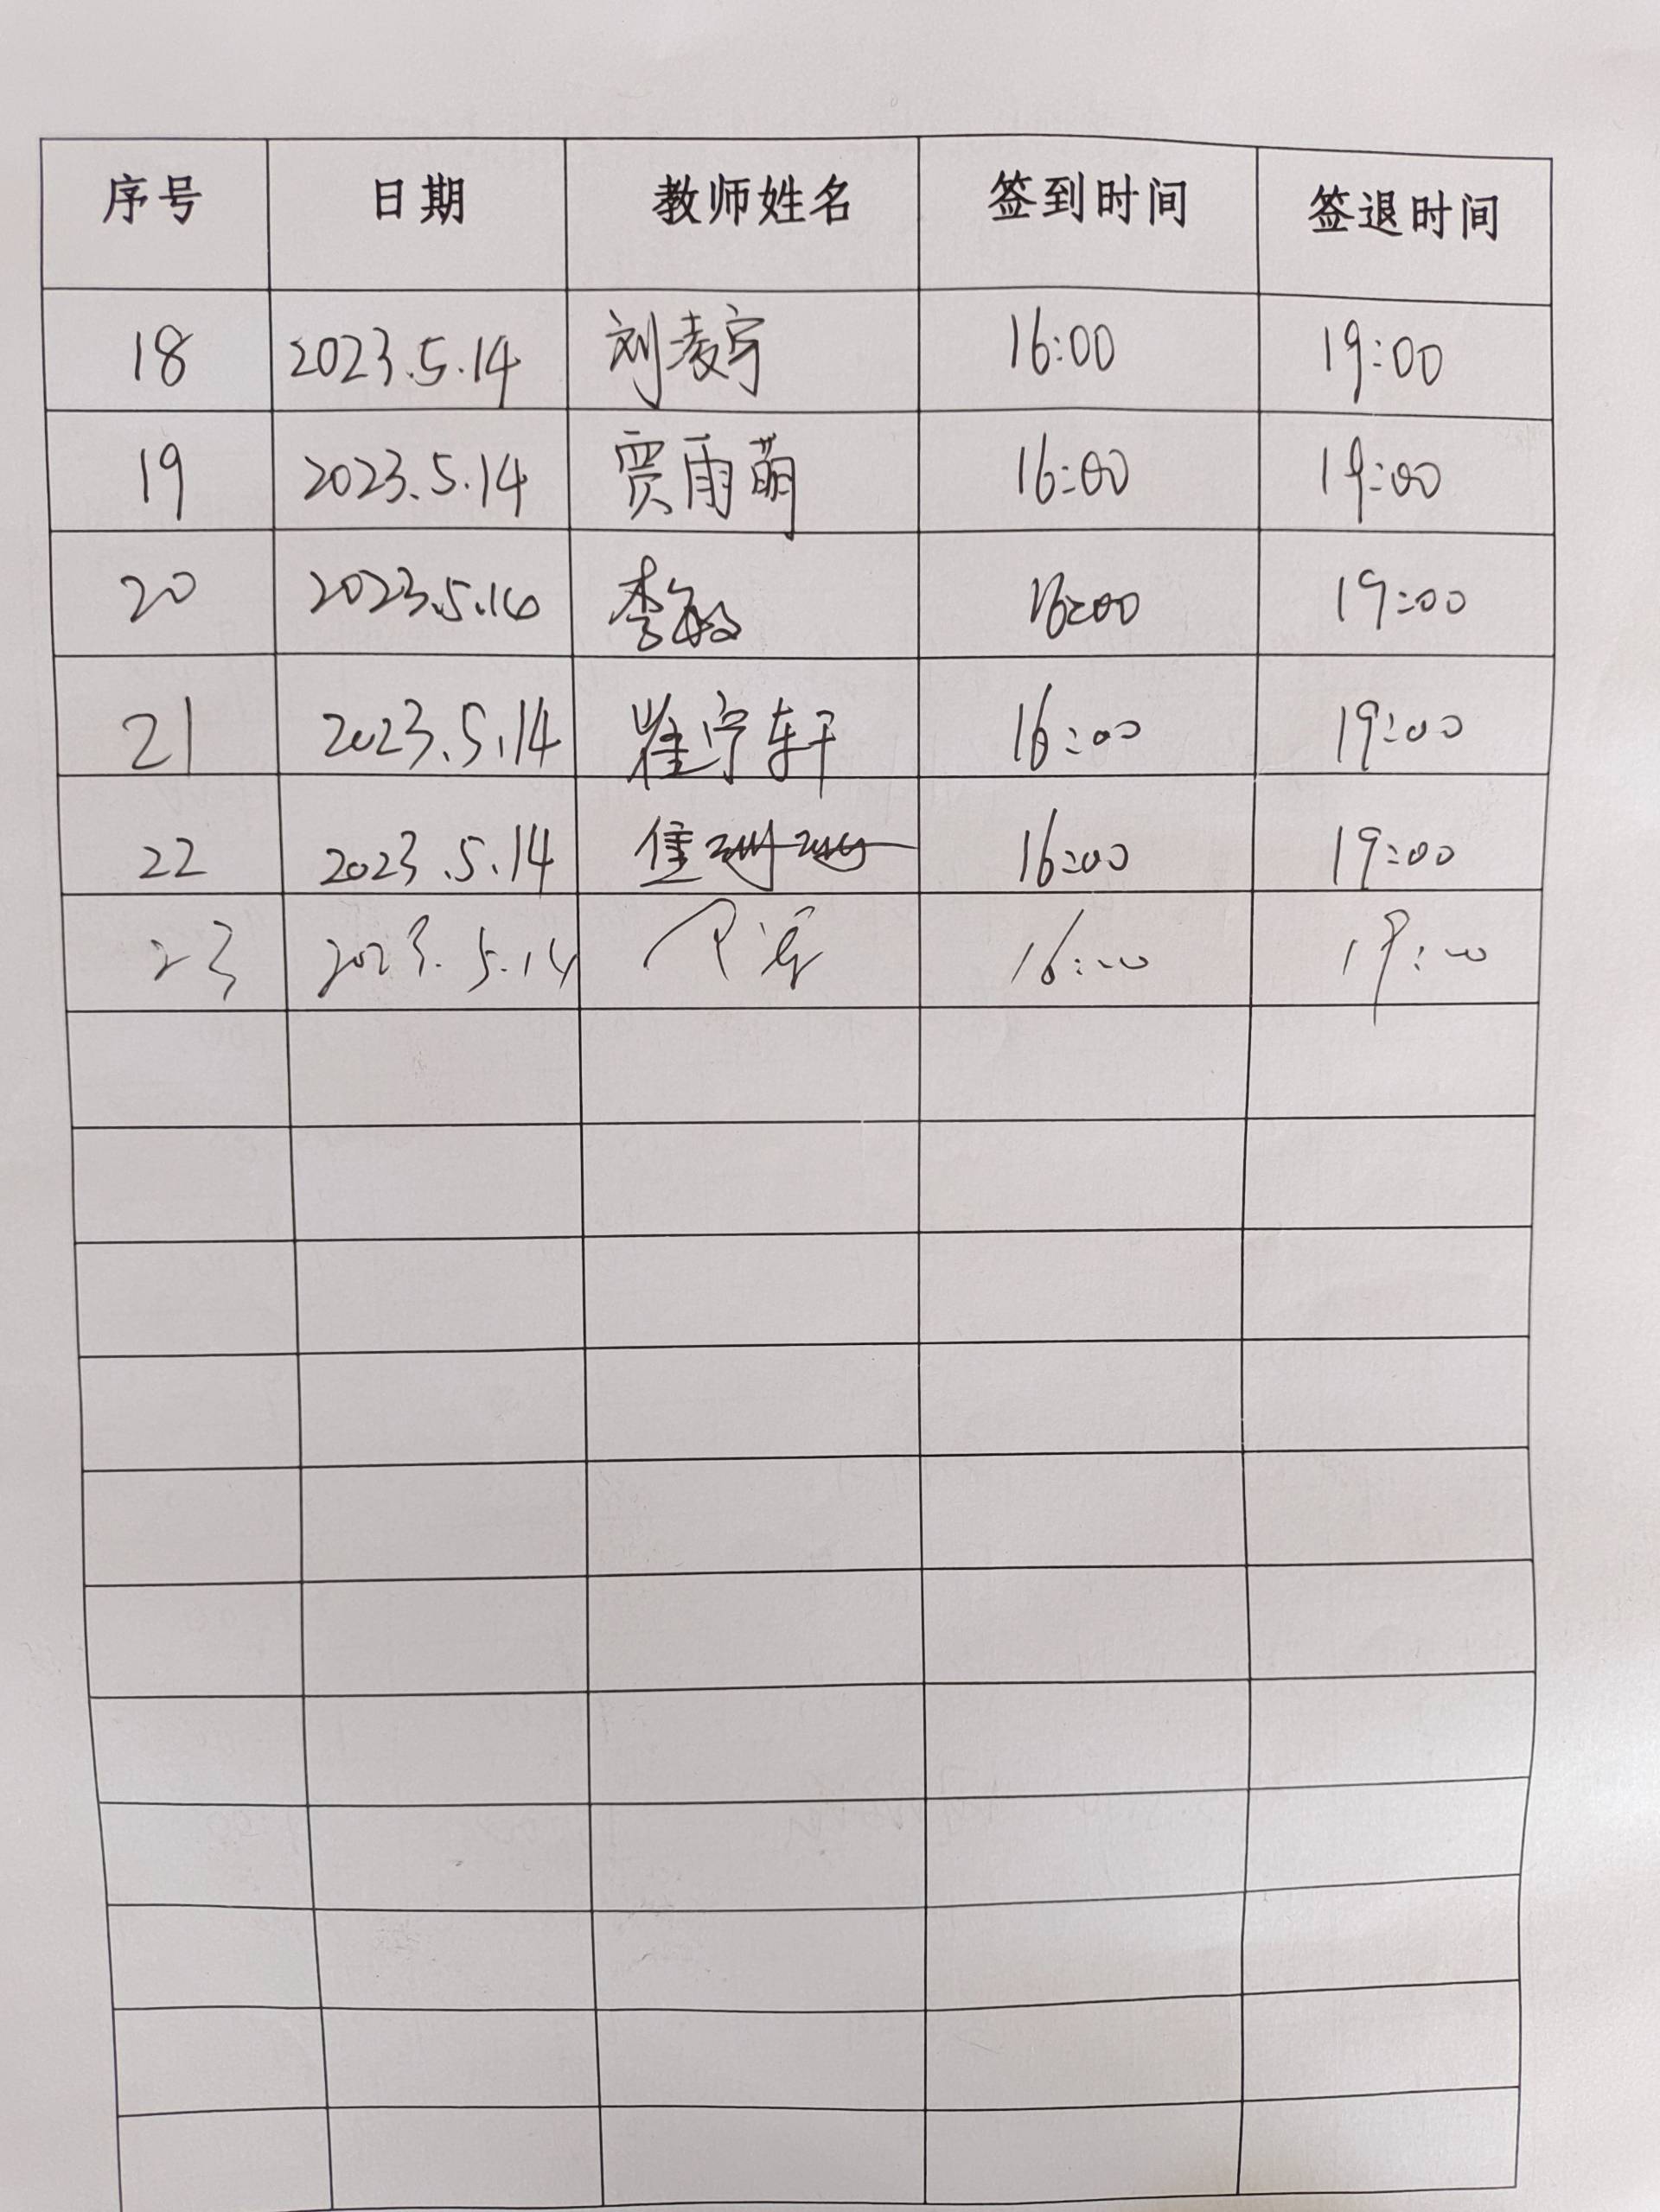 序号 日期 教师姓名 签到时间 签退时间
18 2023.5.14 刘凌宇 16:00 19:00
19 2023.5.14 贾雨萌 16:00 19:00
20 2023.5.14 李敏 16:00 19:00
21 2023.5.14 崔宁轩 16:00 19:00
22 2023.5.14 16:00 19:00
23 2023.5.14 16:00 19:00